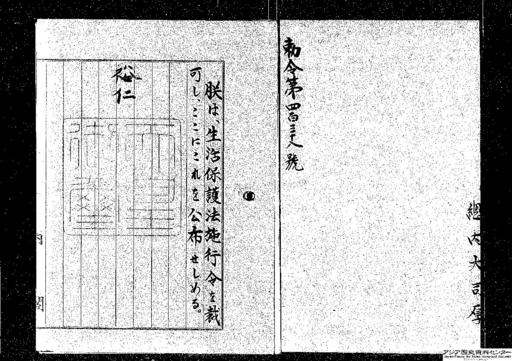 總内大司厚
勅令第四百三十八號
朕は、生活保護法施行令を裁
可し、ここにこれを公布せしめる。
裕仁
天皇
御璽
内閣
アジア歴史資料センター